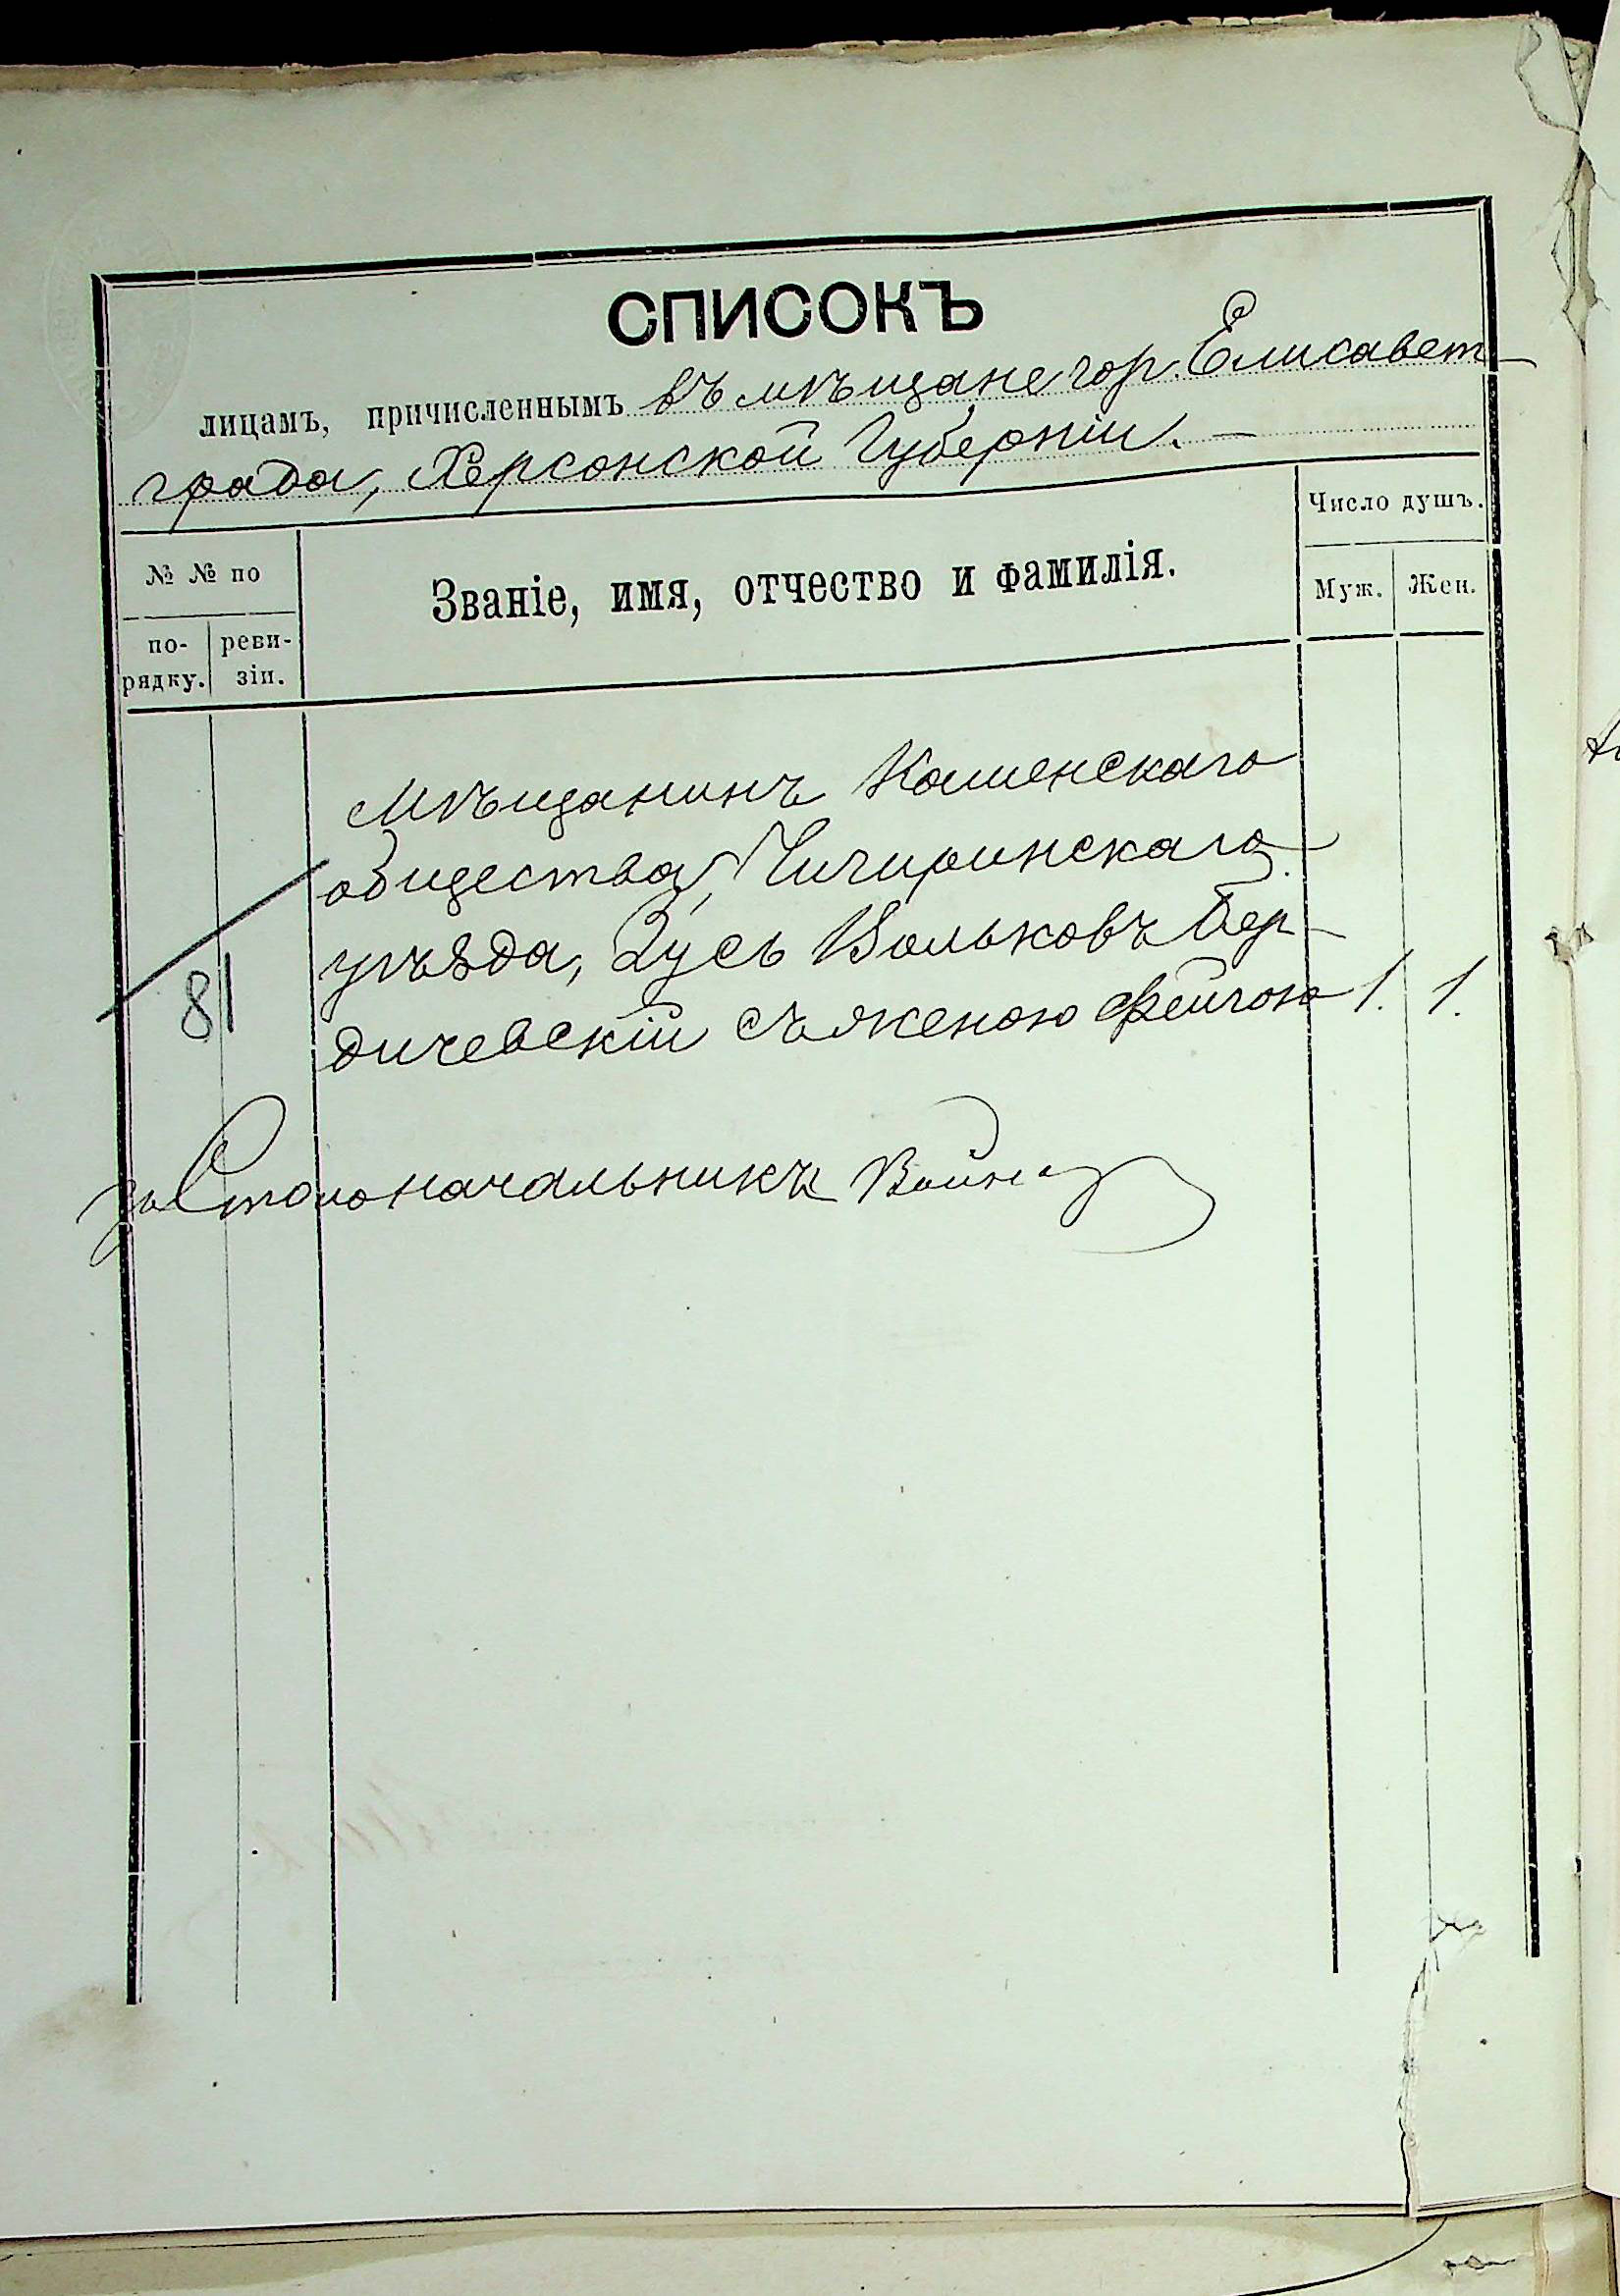 СПИСОКЪ
лицамъ, причисленнымъ въ мѣщане гор. Елисавет-
града, Херсонской Губерніи. —
№ № по
Званіе, имя, отчество и фамилія.
Число душъ.
по-
рядку.
реви-
зіи.
Муж.
Жен.
Мѣщанинъ Каменскаго
общества, Чигиринскаго
уѣзда, Зусь Вольковъ Бер-
81
дичевскій съ женою Фейгою 1. 1.
за Столоначальникъ